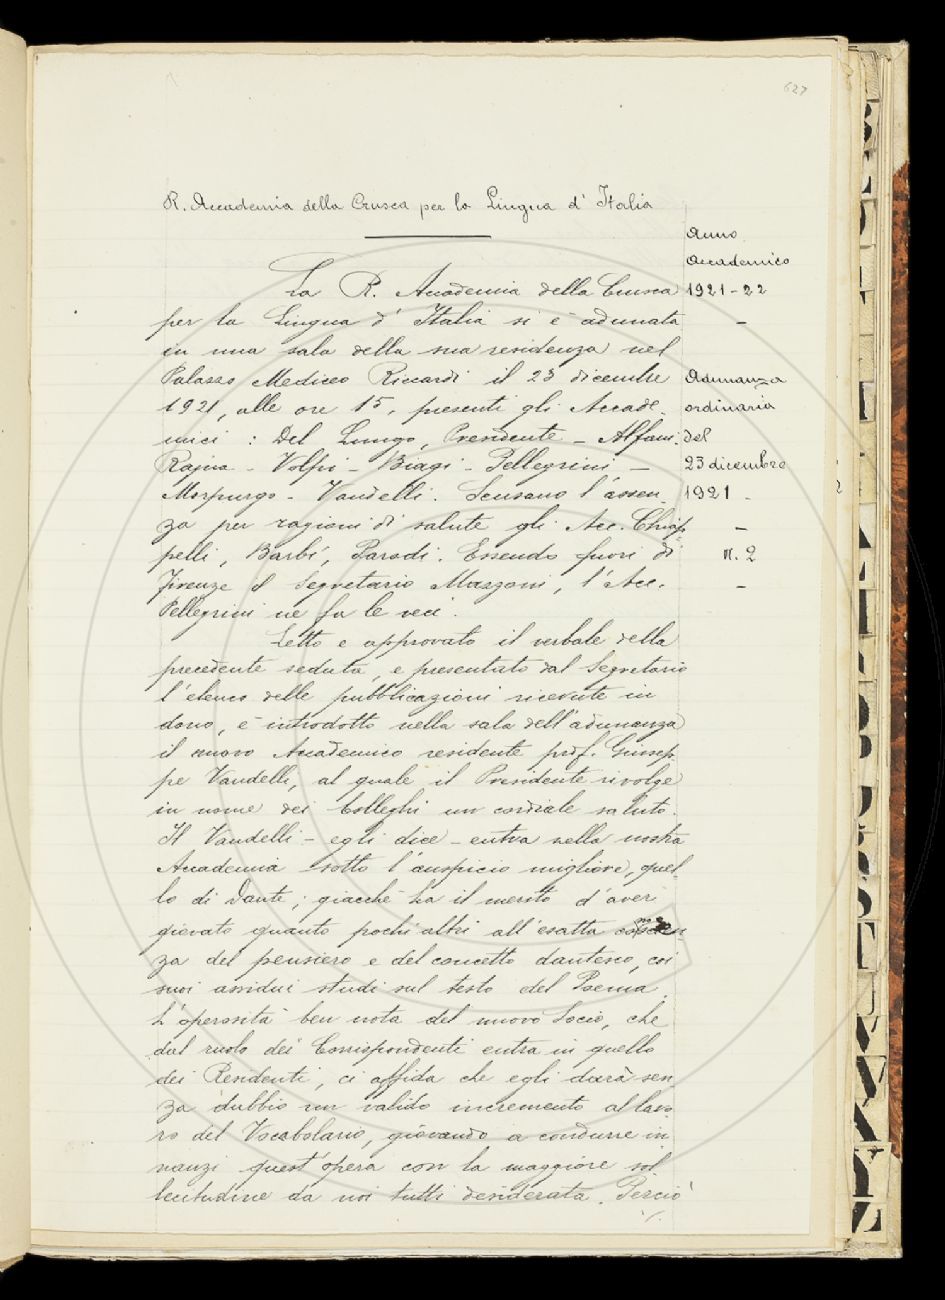 627
R. Accademia della Crusca per la Lingua d'Italia
Anno
Accademico
1921-22
Adunanza
ordinaria
del
23 dicembre
1921.
N. 2
La R. Accademia della Crusca
per la Lingua d'Italia si è adunata
in una sala della sua residenza nel
Palazzo Mediceo Riccardi il 23 dicembre
1921, alle ore 15, presenti gli Accade-
mici: Del Lungo, Presidente - Alfani -
Rajna - Volpi - Biagi - Pellegrini -
Morpurgo - Vandelli. Scusano l'assen-
za per ragioni di salute gli Acc. Chiap-
pelli, Barbi, Parodi. Essendo fuori di
Firenze il Segretario Mazzoni, l'Acc.
Pellegrini ne fa le veci.
Letto e approvato il verbale della
precedente seduta, e presentato dal Segretario
l'elenco delle pubblicazioni ricevute in
dono, è introdotto nella sala dell'adunanza
il nuovo Accademico residente prof. Giusep-
pe Vandelli, al quale il Presidente rivolge
in nome dei Colleghi un cordiale saluto.
Il Vandelli - egli dice - entra nella nostra
Accademia sotto l'auspicio migliore, quel-
lo di Dante; giacchè ha il merito d'aver
giovato quanto pochi altri all'esatta
za del pensiero e del concetto dantesco, coi
suoi assidui studi sul testo del Poema.
L'operosità ben nota del nuovo Socio, che
dal ruolo dei Corrispondenti entra in quello
dei Residenti, ci affida che egli darà sen-
za dubbio un valido incremento al lavo-
ro del Vocabolario, giovando a condurre in-
nanzi quest'opera con la maggiore sol-
lecitudine da noi tutti desiderata. Perciò
./.